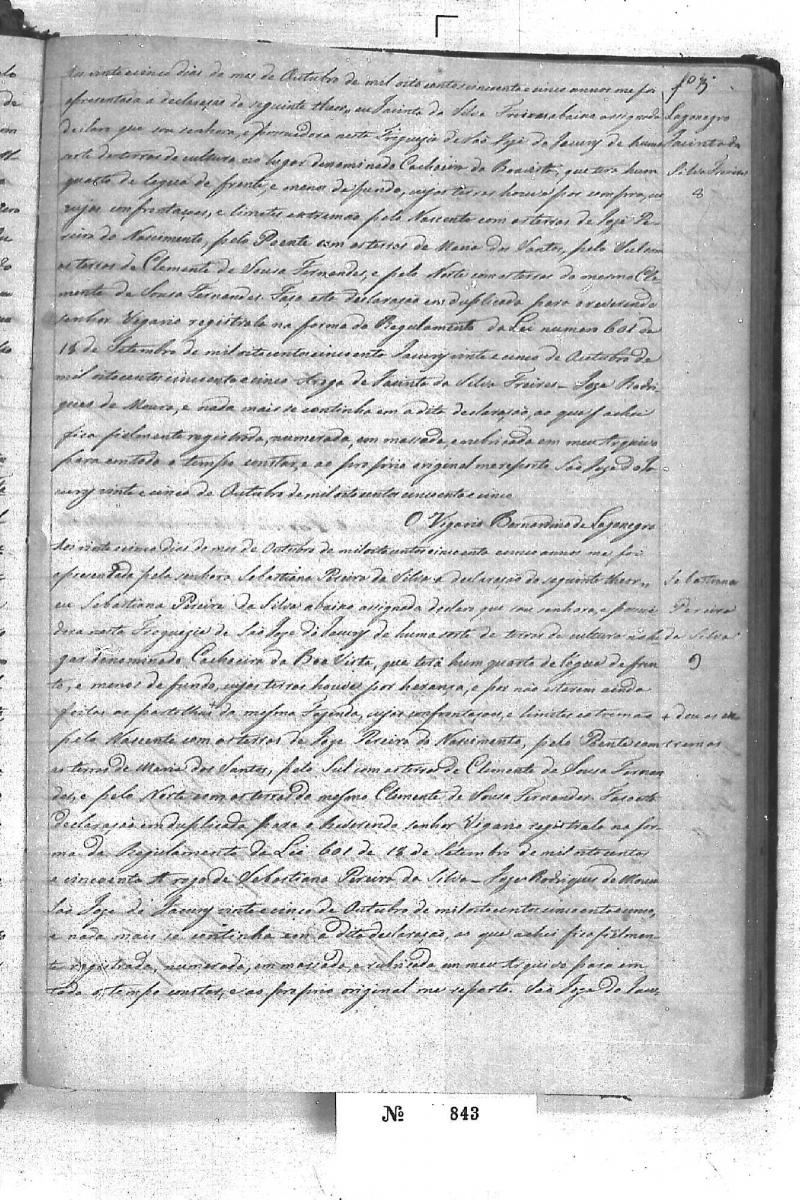 Aos vinte cinco dias do mes de Outubro de mil oito centos cincoenta e cinco annos me foi
apresentada a declaração do seguinte theor,, eu Jacinta da Silva Freires abaixo assignada
declaro que sou senhora, e possuidora nesta Freguezia de São Joze do Jacury de huma
sorte de terras de cultura no lugar denominado Cachoeira da Boa vista, que terá hum
quarto de legoa de frente, e menos de fundo, cujas terras houve por compra, e
cujas confrontaçoes, e limites extremão pelo Nascente com as terras de Joze Pe-
reira do Nascimento, pelo Poente com as terras de Maria dos Santos, pelo Sul com
as terras de Clemente de Sousa Fernandes, e pelo Norte com as terras do mesmo Cle-
mente de Sousa Fernandes. Faço esta declaração em duplicada para o reverendo
senhor Vigario registrala na forma do Regulamento da Lei numero 601 de
18 de Setembro de mil oito centos cincoenta Jacury vinte e cinco de Outubro de
mil oito centos cincoenta e cinco Arogo de Jacinta da Silva Freires - Joze Rodri-
gues de Moura, e nada mais se continha em a dita declaração, ao que achei
fica fielmente registrada, numerada, em massada, e rubricada em meu Arquivo
para em todo o tempo constar, e ao proprio original me reporto São Joze do Ja-
cury vinte e cinco de Outubro de mil oito centos cincoenta e cinco
O Vigario Bernardino de Lagonegro
Aos vinte cinco dias do mes de Outubro de mil oito centos cincoenta e cinco annos me foi
apresentada pela senhora Sebastiana Pereira da Silva a declaração do seguinte theor,,
eu Sebastiana Pereira da Silva abaixo assignada declaro que sou senhora, e possui-
dora nesta Freguezia de São Joze do Jacury de huma sorte de terras de cultura no lu-
gar denominado Cachoeira da Boa Vista, que terá hum quarto de legoa de fren-
te, e menos de fundo, cujas terras houve por herança, e por não estarem ainda
feitas as partilhas da mesma Fazenda, cujas confrontaçoes, e limites extremão
pelo Nascente com as terras de Joze Pereira do Nascimento, pelo Poente com
as terras de Maria dos Santos, pelo Sul com as terras de Clemente de Sousa Fernan
des, e pelo Norte com as terras do mesmo Clemente de Sousa Fernandes. Faço esta
declaração em duplicada para o Reverendo senhor Vigario registrala na for-
ma do Regulamento da Lei 601 de 18 de Setembro de mil oito centos
e cincoenta A rogo de Sebastiana Pereira da Silva - Joze Rodrigues de Moura
São Joze do Jacury vinte e cinco de Outubro de mil oito centos cincoenta e cinco,
e nada mais se continha em a dita declaração, ao que achei fica fielmen-
te registrada, numerada, em massada, e rubricada em meu Arquivo para em
todo o tempo constar, e ao proprio original me reporto. São Joze do Jacu,
Lagonegro
Jacinta da
Silva Freires
8
Sebastiana
Pereira
da Silva
9
tremos
Nº 843